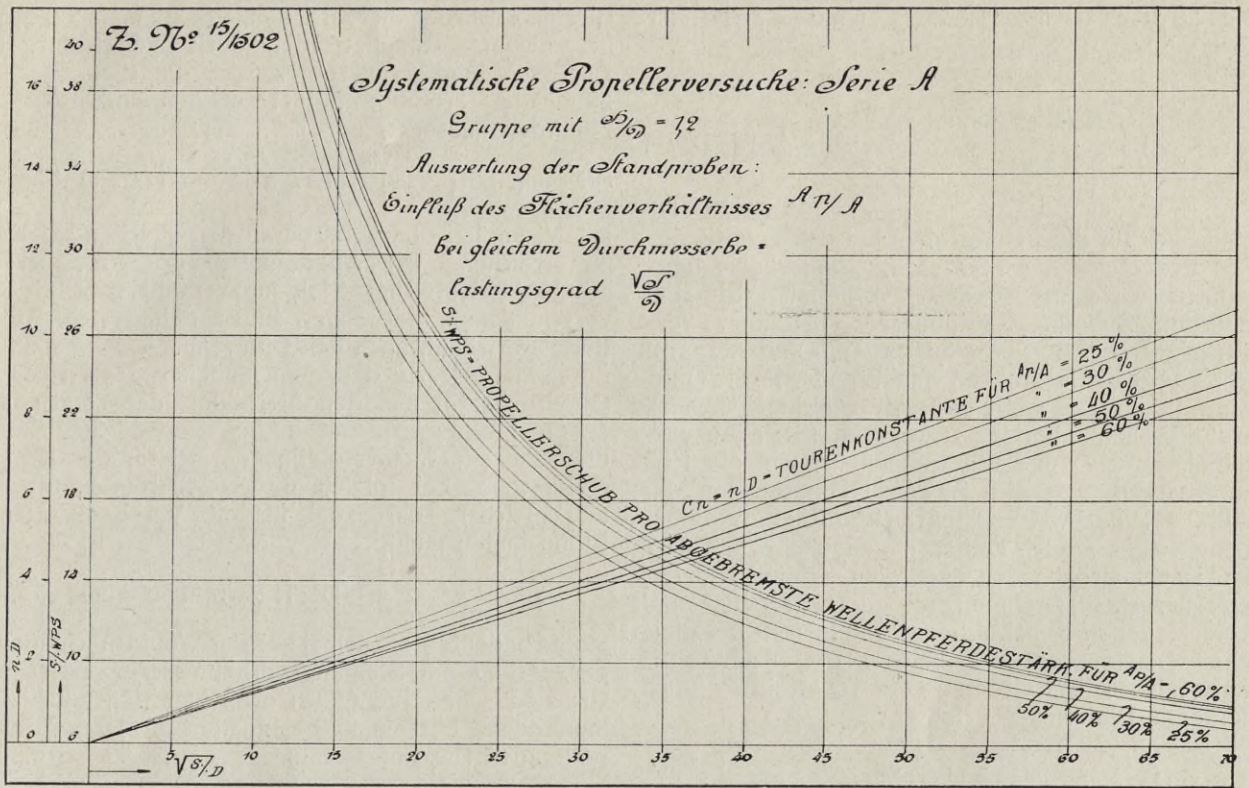 Z. Nº 15/1502
Systematische Propellerversuche: Serie A
Gruppe mit H/D = 1,2
Auswertung der Standproben:
Einfluß des Flächenverhältnisses Ap/A
bei gleichem Durchmesserbe =
lastungsgrad √S/D
S/.WPS = PROPELLERSCHUB PRO ABGEBREMSTE WELLENPFERDESTÄRK. FÜR Ap/A = 60%
50% 40% 30% 25%
Cn = n D = TOURENKONSTANTE FÜR Ap/A = 25%
" = 30%
" = 40%
" = 50%
" = 60%
16
14
12
10
8
6
4
2
0
n D
40
38
34
30
26
22
18
14
10
6
S/.WPS
√S/.D
5 10 15 20 25 30 35 40 45 50 55 60 65 70